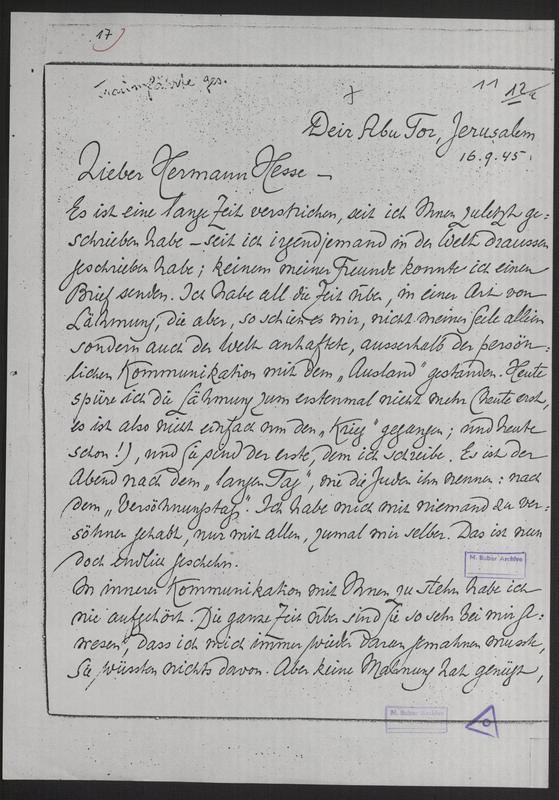 17
ges.
11 12
Deir Abu Tor, Jerusalem
16.9.45.
Lieber Hermann Hesse –
Es ist eine lange Zeit verstrichen, seit ich Ihnen zuletzt ge-
schrieben habe – seit ich irgendjemand in der Welt draussen
geschrieben habe; keinem meiner Freunde konnte ich einen
Brief senden. Ich habe all die Zeit über, in einer Art von
Lähmung, die aber, so schien es mir, nicht meiner Seele allein
sondern auch der Welt anhaftete, ausserhalb der persön-
lichen Kommunikation mit dem „Ausland" gestanden. Heute
spüre ich die Lähmung zum erstenmal nicht mehr (heute erst,
es ist also nicht einfach um den „Krieg" gegangen; und heute
schon!), und Sie sind der erste, dem ich schreibe. Es ist der
Abend nach dem „langen Tag", wie die Juden ihn nennen: nach
dem „Versöhnungstag". Ich habe mich mit niemand zu ver-
söhnen gehabt, nur mit allen, zumal mir selber. Das ist nun
doch endlich geschehn.
M. Buber Archive
In innerer Kommunikation mit Ihnen zu stehn habe ich
nie aufgehört. Die ganze Zeit über sind Sie so sehr bei mir ge-
wesen, dass ich mich immer wieder daran gemahnen musste,
Sie wüssten nichts davon. Aber keine Mahnung hat genügt,
M. Buber Archive